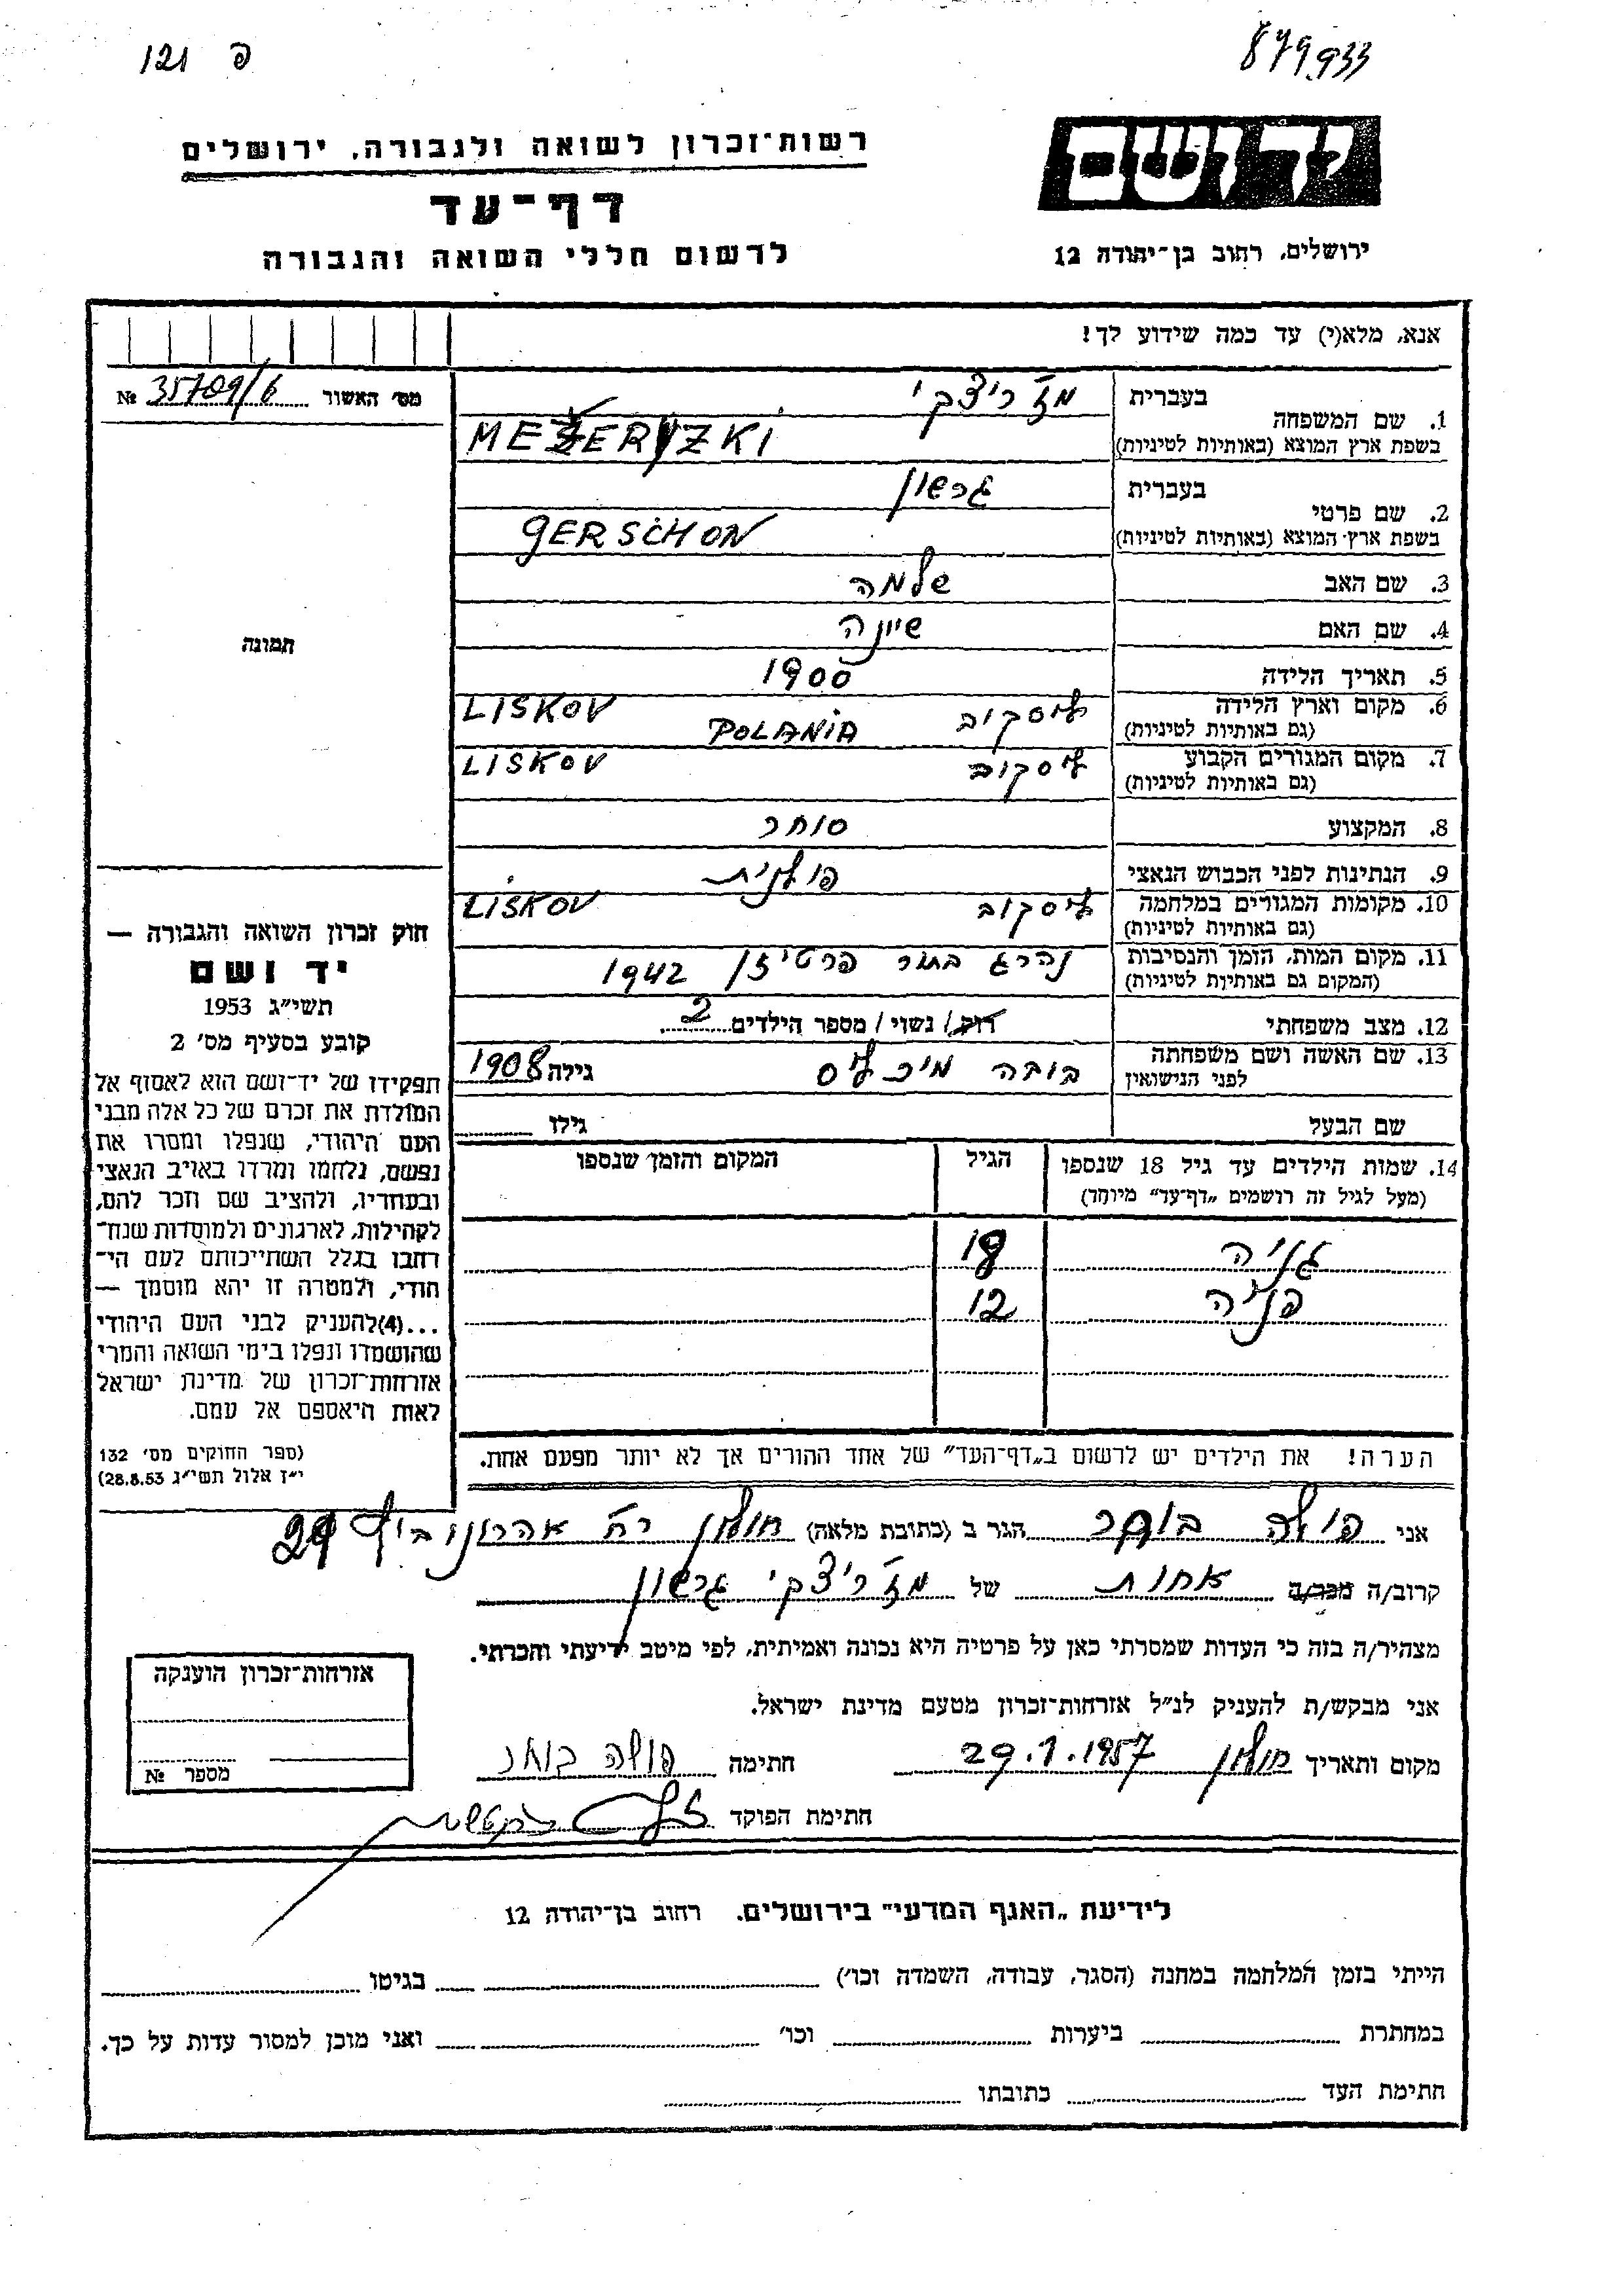 פ 121
879933
יד ושם
ירושלים, רחוב בן־יהודה 12
רשות־זכרון לשואה ולגבורה, ירושלים
דף־עד
לרשום חללי השואה והגבורה
אנא, מלא(י) עד כמה שידוע לך!
מס' האשור 35709/6 №
1. שם המשפחה בעברית מז'ריצקי
בשפת ארץ המוצא (באותיות לטיניות) MEŽERYZKI
2. שם פרטי בעברית גרשון
בשפת ארץ המוצא (באותיות לטיניות) GERSCHON
3. שם האב שלמה
4. שם האם שיינה
5. תאריך הלידה 1900
6. מקום וארץ הלידה ליסקוב LISKOV
(גם באותיות לטיניות) POLANIA
7. מקום המגורים הקבוע ליסקוב LISKOV
(גם באותיות לטיניות)
8. המקצוע סוחר
9. הנתינות לפני הכבוש הנאצי פולנית
10. מקומות המגורים במלחמה ליסקוב LISKOV
(גם באותיות לטיניות)
11. מקום המות, הזמן והנסיבות נהרג בתור פרטיזן 1942
(המקום גם באותיות לטיניות)
12. מצב משפחתי רוק/ נשוי/ מספר הילדים 2
13. שם האשה ושם משפחתה גילה 1908
לפני הנישואין
שם הבעל גילו
14. שמות הילדים עד גיל 18 שנספו הגיל המקום והזמן שנספו
(מעל לגיל זה רושמים „דף־עד״ מיוחד)
גניה 18
פניה 12
הערה! את הילדים יש לרשום ב„דף־העד״ של אחד ההורים אך לא יותר מפעם אחת.
תמונה
חוק זכרון השואה והגבורה —
יד ושם
תשי״ג 1953
קובע בסעיף מס' 2
תפקידו של יד־ושם הוא לאסוף אל
המולדת את זכרם של כל אלה מבני
העם היהודי, שנפלו ומסרו את
נפשם, נלחמו ומרדו באויב הנאצי
ובעוזריו, ולהציב שם וזכר להם,
לקהילות, לארגונים ולמוסדות שנח־
רחבו בגלל השתייכותם לעם הי־
הודי, ולמטרה זו יהא מוסמך —
...(4) להעניק לבני העם היהודי
שהושמדו ונפלו בימי השואה והמרי
אזרחות־זכרון של מדינת ישראל
לאות היאספם אל עמם.
(ספר החוקים מס' 132
י״ז אלול תשי״ג 28.8.53)
אני פולה בוחר הגר ב (כתובת מלאה) חולון רח' אהרונוביץ 29
קרוב/ה מכר/ה אחות של מז'ריצקי גרשון
מצהיר/ה בזה כי העדות שמסרתי כאן על פרטיה היא נכונה ואמיתית, לפי מיטב ידיעתי והכרתי.
אני מבקש/ת להעניק לנ״ל אזרחות־זכרון מטעם מדינת ישראל.
מקום ותאריך חולון 29.1.1957 חתימה פולה בוחר
חתימת הפוקד
אזרחות־זכרון הוענקה
מספר №
לידיעת „האגף המדעי״ בירושלים. רחוב בן־יהודה 12
הייתי בזמן המלחמה במחנה (הסגר, עבודה, השמדה וכו') בגיטו
במחתרת ביערות וכו' ואני מוכן למסור עדות על כך.
חתימת העד כתובתו